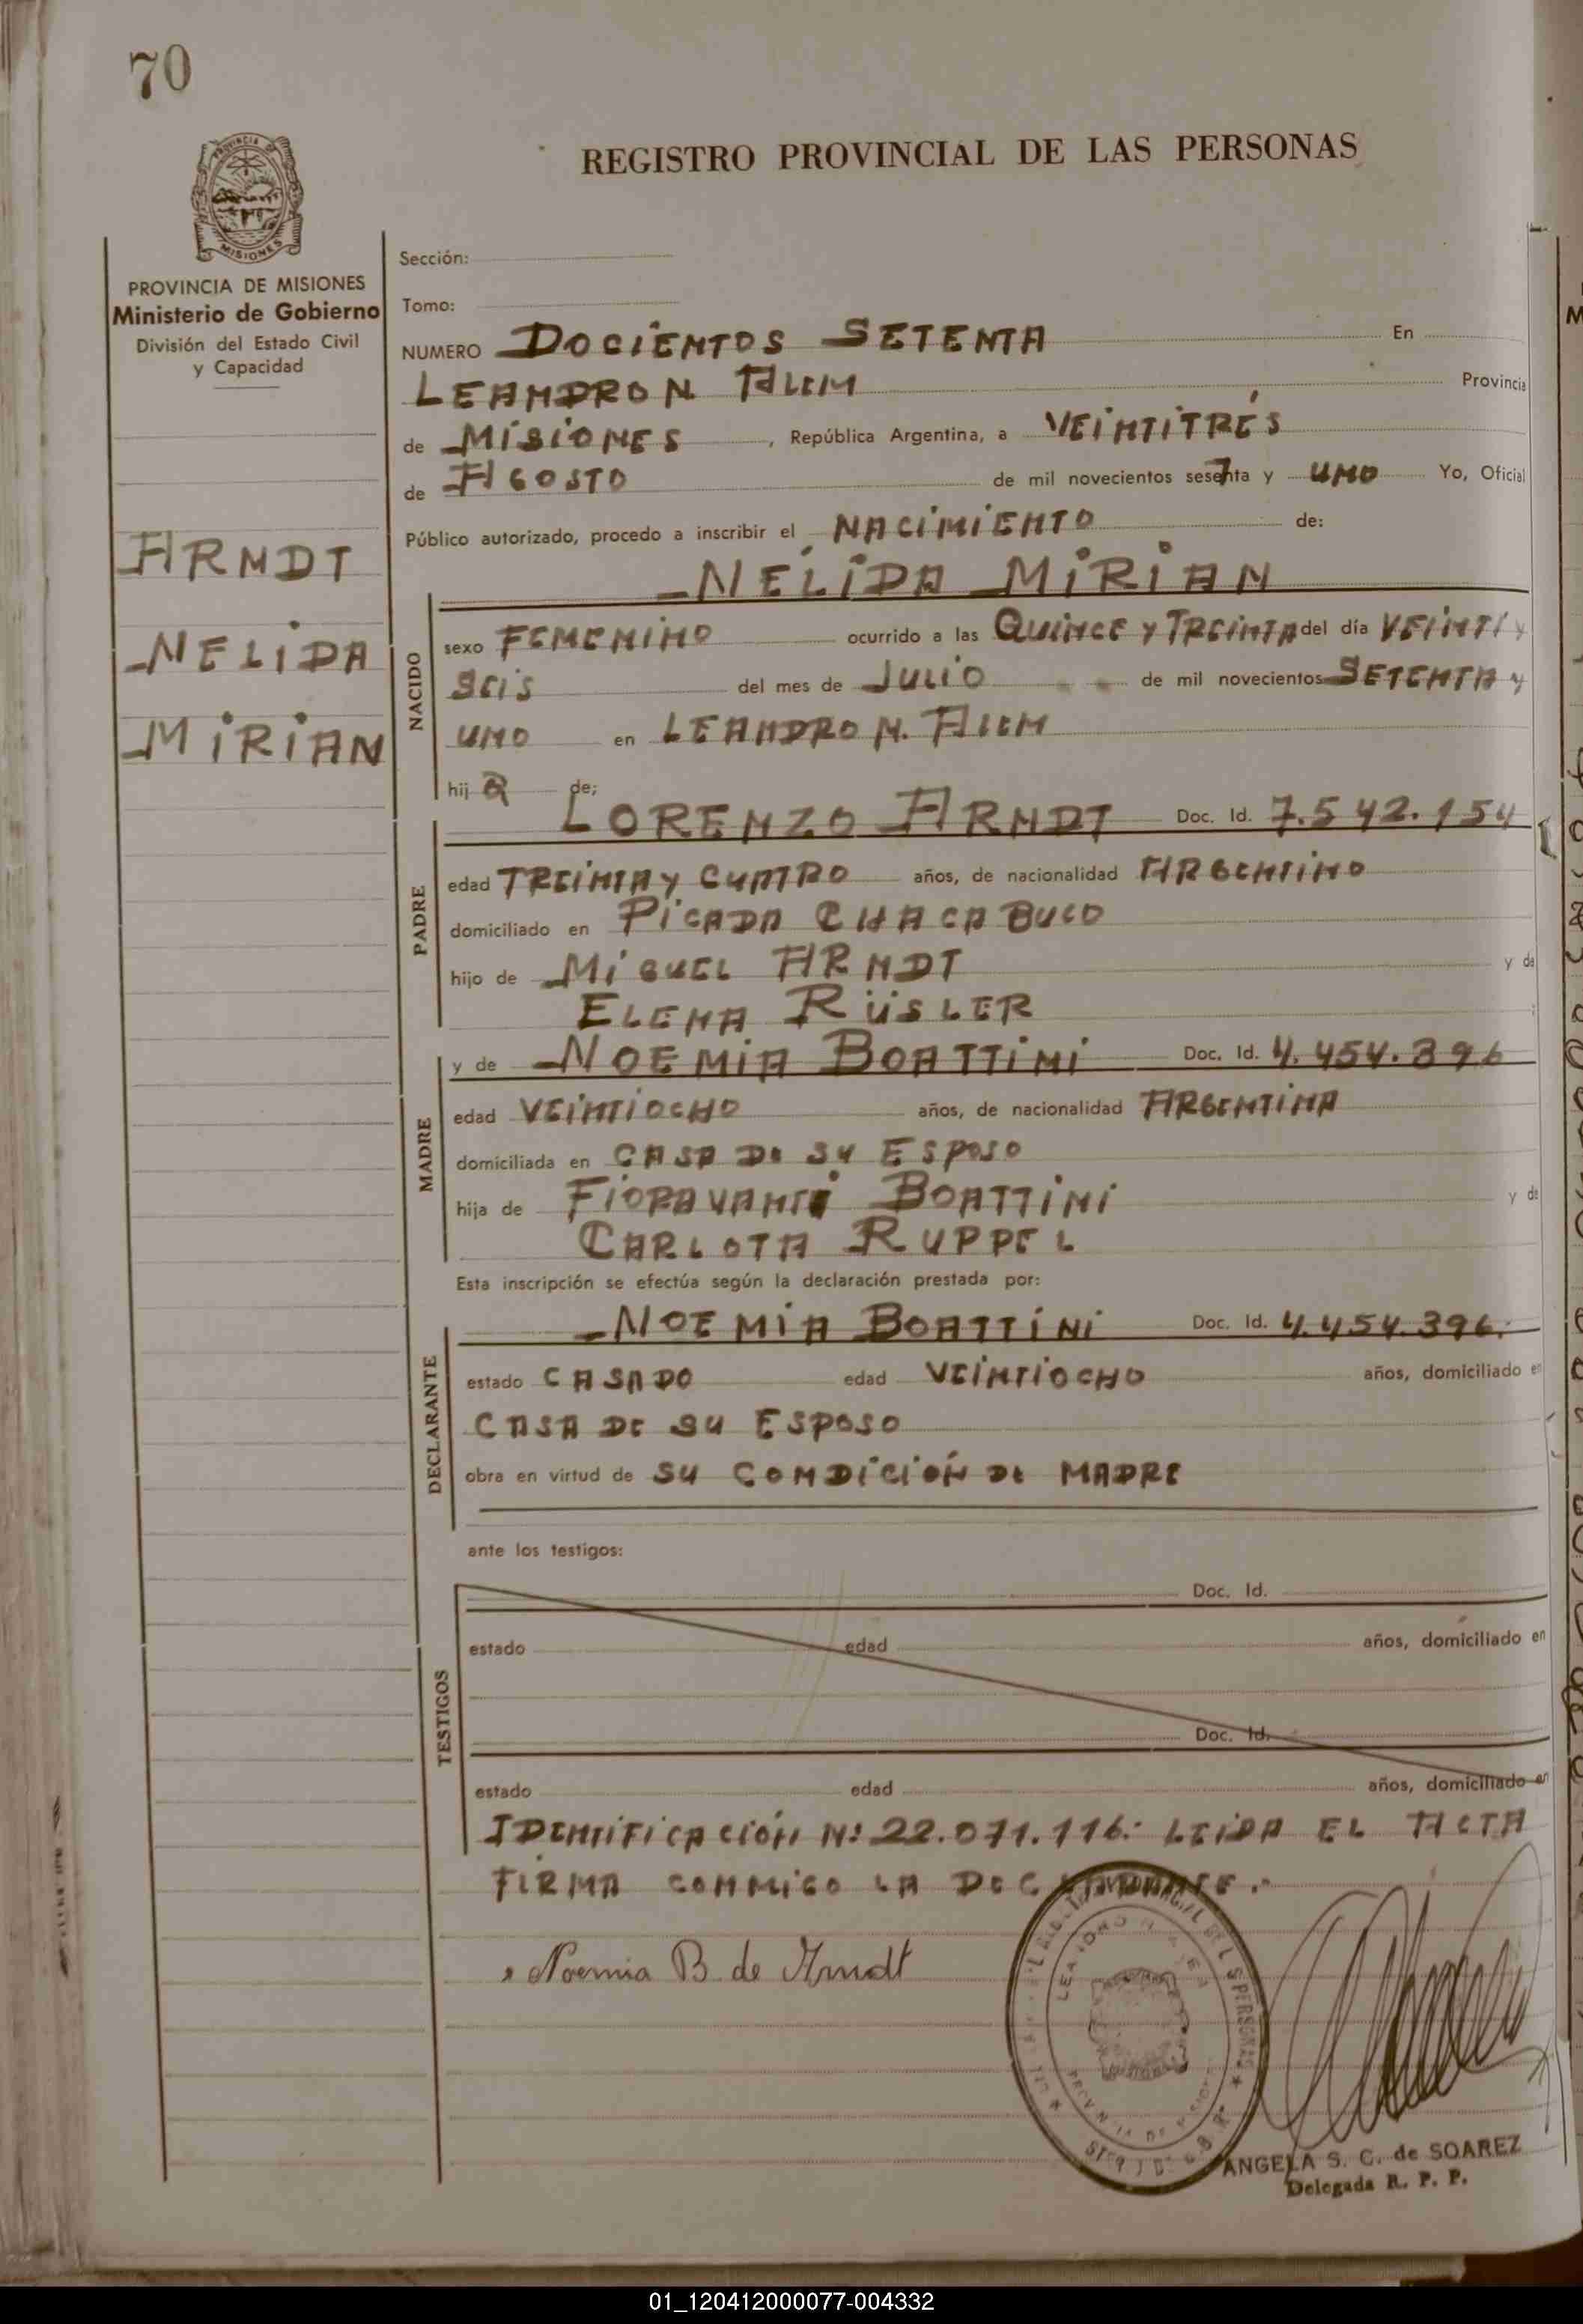 70
REGISTRO PROVINCIAL DE LAS PERSONAS
MISIONES
PROVINCIA DE MISIONES
Ministerio de Gobierno
División del Estado Civil
y Capacidad
ARNDT
NELIDA
MIRIAN
Sección:
Tomo:
NUMERO DOCIENTOS SETENTA En
LEANDRO N ALEM Provincia
de MISIONES, República Argentina, a VEINTITRÉS
de AGOSTO de mil novecientos sesenta y UNO Yo, Oficial
Público autorizado, procedo a inscribir el NACIMIENTO de:
NÉLIDA MIRIAN
NACIDO
sexo FEMENINO ocurrido a las QUINCE Y TREINTA del día VEINTI Y
SEIS del mes de JULIO de mil novecientos SETENTA Y
UNO en LEANDRO N. ALEM
hij a de;
PADRE
LORENZO ARNDT Doc. Id. 7.542.154
edad TREINTA Y CUATRO años, de nacionalidad ARGENTINO
domiciliado en PICADA CHACABUCO
hijo de MIGUEL ARNDT y de
ELENA RÜSLER
MADRE
y de NOEMIA BOATTINI Doc. Id. 4.454.396
edad VEINTIOCHO años, de nacionalidad ARGENTINA
domiciliada en CASA DE SU ESPOSO
hija de FIORAVANTI BOATTINI y de
CARLOTA RUPPEL
Esta inscripción se efectúa según la declaración prestada por:
DECLARANTE
NOEMIA BOATTINI Doc. Id. 4.454.396.
estado CASADO edad VEINTIOCHO años, domiciliado en
CASA DE SU ESPOSO
obra en virtud de SU CONDICIÓN DE MADRE
ante los testigos:
TESTIGOS
Doc. Id.
estado edad años, domiciliado en
Doc. Id.
estado edad años, domiciliado en
IDENTIFICACIÓN N: 22.071.116.- LEIDA EL ACTA
FIRMA CONMIGO LA
Noemia B. de Arndt
ANGELA S. C. de SOAREZ
Delegada R. P. P.
01_120412000077-004332